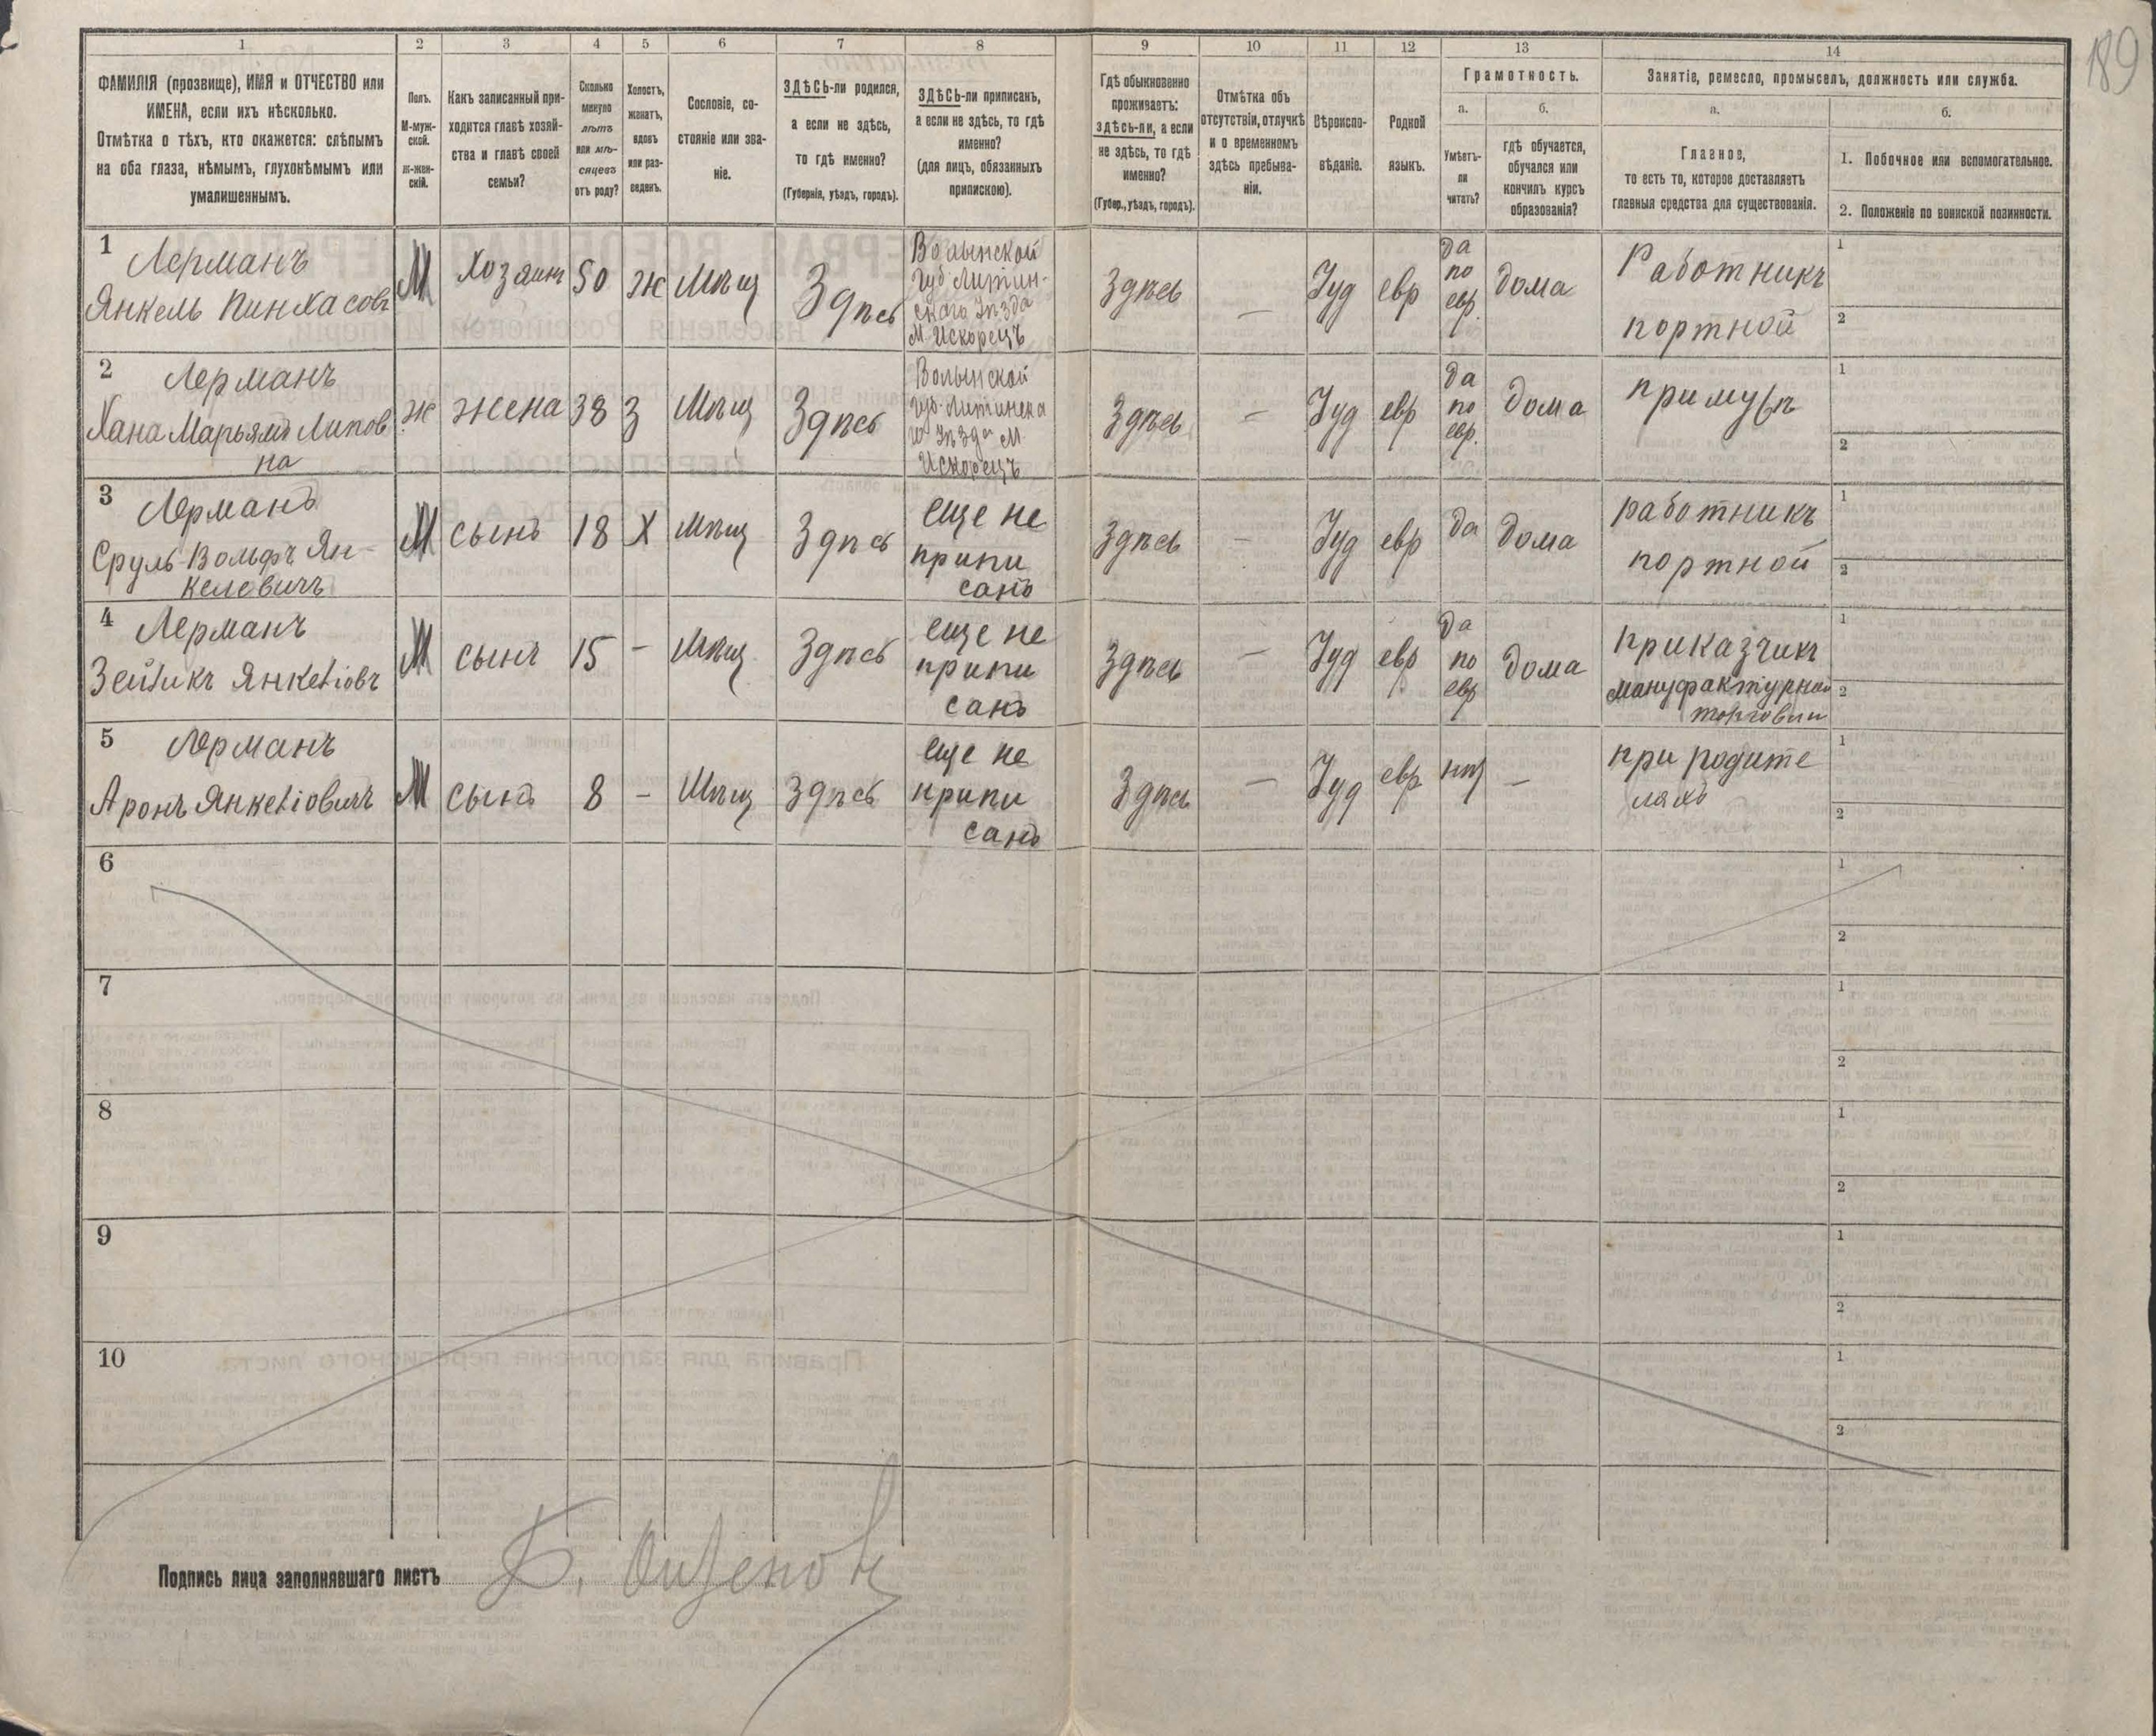 189
1 2 3 4 5 6 7 8 9 10 11 12 13 14
ФАМИЛІЯ (прозвище), ИМЯ и ОТЧЕСТВО или
ИМЕНА, если ихъ нѣсколько.
Отмѣтка о тѣхъ, кто окажется: слѣпымъ
на оба глаза, нѣмымъ, глухонѣмымъ или
умалишеннымъ.
Полъ.
М-муж-
ской.
ж-жен-
скій.
Какъ записанный при-
ходится главѣ хозяй-
ства и главѣ своей
семьи?
Сколько
минуло
лѣтъ
или мѣ-
сяцевъ
отъ роду?
Холостъ,
женатъ,
вдовъ
или раз-
веденъ.
Сословіе, со-
стояніе или зва-
ніе.
ЗДѢСЬ-ли родился,
а если не здѣсь,
то гдѣ именно?
(Губернія, уѣздъ, городъ).
ЗДѢСЬ-ли приписанъ,
а если не здѣсь, то гдѣ
именно?
(для лицъ, обязанныхъ
припискою).
Гдѣ обыкновенно
проживаетъ:
здѣсь-ли, а если
не здѣсь, то гдѣ
именно?
(Губер., уѣздъ, городъ).
Отмѣтка объ
отсутствіи, отлучкѣ
и о временномъ
здѣсь пребыва-
ніи.
Вѣроиспо-
вѣданіе.
Родной
языкъ.
Грамотность.
а.
Умѣетъ-
ли
читать?
б.
гдѣ обучается,
обучался или
кончилъ курсъ
образованія?
Занятіе, ремесло, промыселъ, должность или служба.
а.
Главное,
то есть то, которое доставляетъ
главныя средства для существованія.
б.
1. Побочное или вспомогательное.
2. Положеніе по воинской повинности.
1
Лерманъ
Янкель Пинхасовъ
М
Хозяинъ
50
ж
Мѣщ
Здѣсь
Волынской
губ. Литин-
скаго Уѣзда
М. Искорецъ
Здѣсь
—
Іуд
евр
да
по
евр.
дома
Работникъ
портной
1
2
2
Лерманъ
Хана Марьямъ Липов
на
ж
жена
38
З
Мѣщ
Здѣсь
Волынской
губ. Литинска
го Уѣзда М.
Искорецъ
Здѣсь
—
Іуд
евр
да
по
евр.
дома
при мужѣ
1
2
3
Лерманъ
Сруль-Вольфъ Ян-
келевичъ
М
сынъ
18
Х
Мѣщ
Здѣсь
еще не
припи
санъ
Здѣсь
—
Іуд
евр
да
дома
работникъ
портной
1
2
4
Лерманъ
Зейликъ Янкеліовъ
М
сынъ
15
—
Мѣщ
Здѣсь
еще не
припи
санъ
Здѣсь
—
Іуд
евр
да
по
евр
дома
приказчикъ
мануфактурной
торговли
1
2
5
Лерманъ
Аронъ Янкеліовичъ
М
сынъ
8
—
Мѣщ
Здѣсь
еще не
припи
санъ
Здѣсь
—
Іуд
евр
нѣт
—
при родите
ляхъ
1
2
6
1
2
7
1
2
8
1
2
9
1
2
10
1
2
Подпись лица заполнявшаго листъ